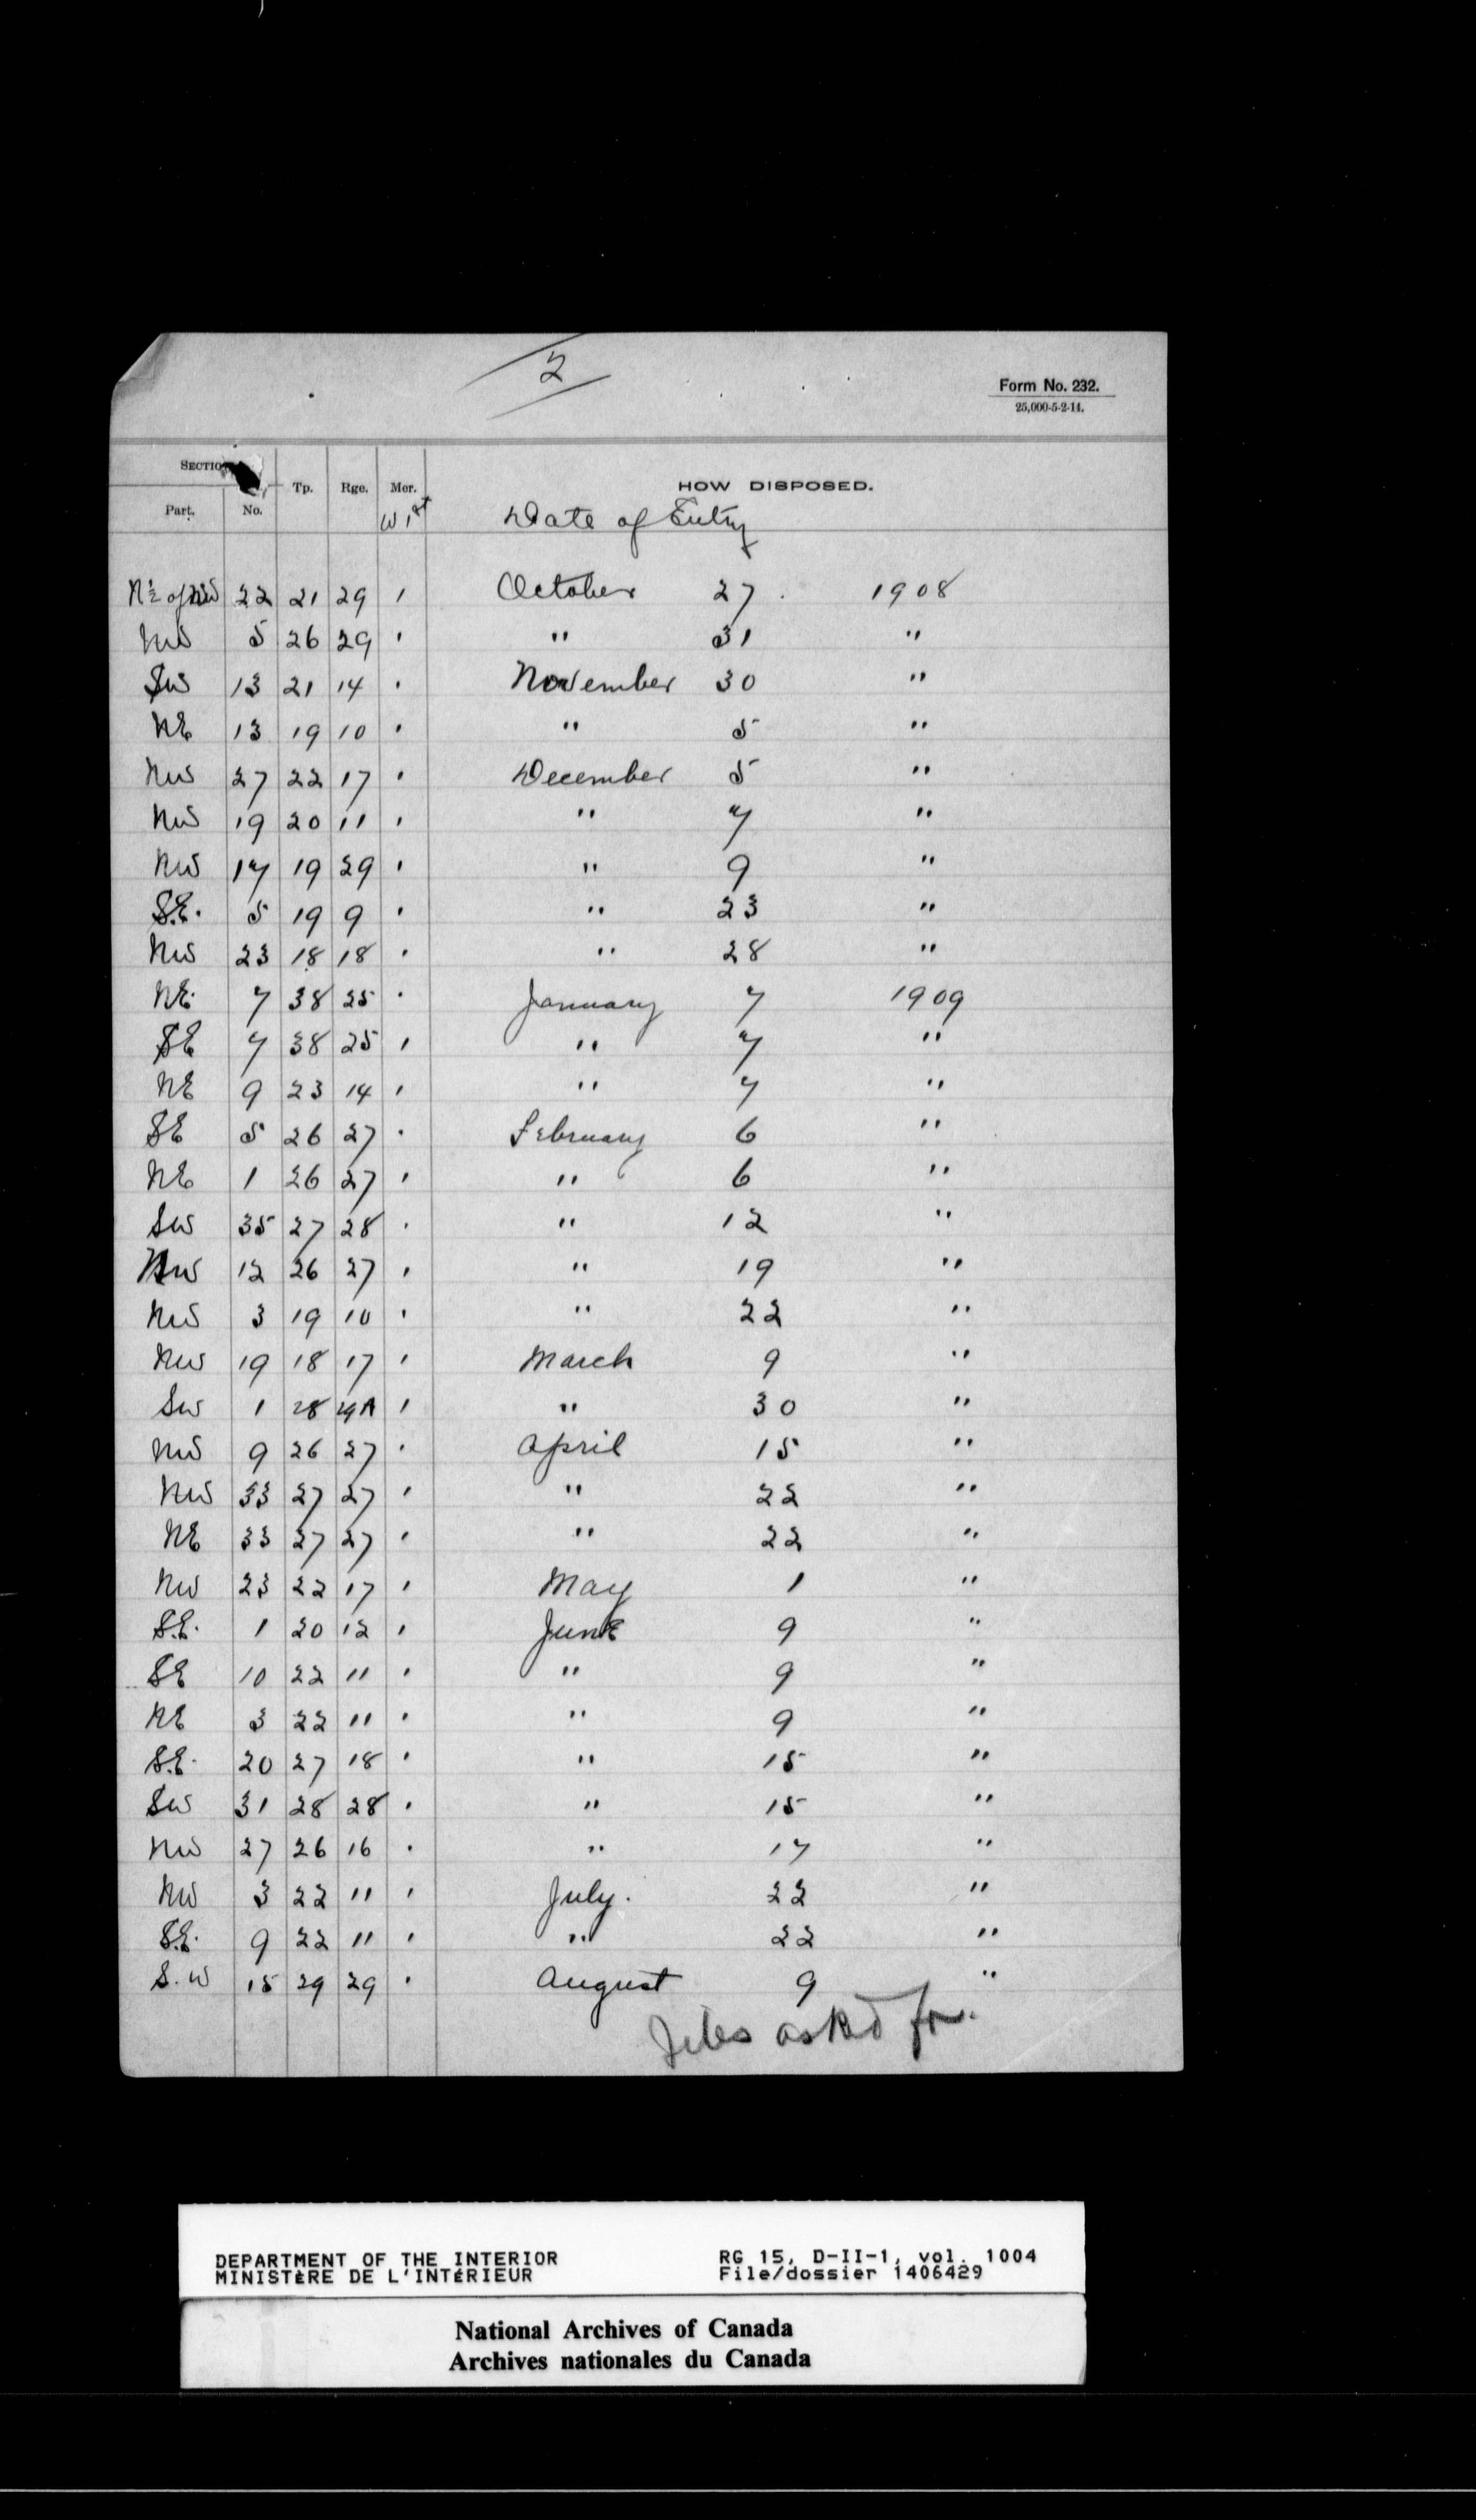 2
Form No. 232.
25,000-5-2-14.
SECTION Tp. Rge. Mer. HOW DISPOSED.
Part. No. W 1st Date of Entry
N½ of NW 22 21 29 1 October 27 1908
NW 5 26 29 " " 31 "
SW 13 21 14 " November 30 "
NE 13 19 10 " " 5 "
NW 27 22 17 " December 5 "
NW 19 20 11 " " 7 "
NW 17 19 29 " " 9 "
S.E. 5 19 9 " " 23 "
NW 23 18 18 " " 28 "
NE. 7 38 25 " January 7 1909
SE 7 38 25 " " 7 "
NE 9 23 14 " " 7 "
SE 5 26 27 " February 6 "
NE 1 26 27 " " 6 "
SW 35 27 28 " " 12 "
NW 12 26 27 " " 19 "
NW 3 19 10 " " 22 "
NW 19 18 17 " March 9 "
SW 1 28 29A " " 30 "
NW 9 26 27 " April 15 "
NW 33 27 27 " " 22 "
NE 33 27 27 " " 22 "
NW 23 22 17 " May 1 "
S.E. 1 20 12 " June 9 "
SE 10 22 11 " " 9 "
NE 3 22 11 " " 9 "
S.E. 20 27 18 " " 15 "
SW 31 28 28 " " 15 "
NW 27 26 16 " " 17 "
NW 3 22 11 " July. 22 "
S.E. 9 22 11 " " 22 "
S.W 15 29 29 " August 9 "
files asked for.
DEPARTMENT OF THE INTERIOR RG 15, D-II-1, vol. 1004
MINISTÈRE DE L'INTÉRIEUR File/dossier 1406429
National Archives of Canada
Archives nationales du Canada